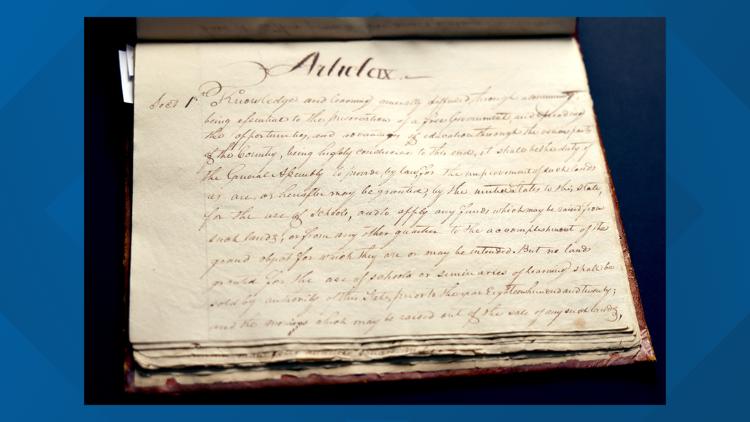 Article IX.
Sect. 1st Knowledge, and learning generally diffused, through a community,
being essential to the preservation of a free Government, and spreading
the opportunities, and advantages of education through the various parts
of the Country, being highly conducive to this end, it shall be the duty of
the General Assembly to provide, by law, for the improvement of such lands
as are, or hereafter may be granted, by the united States to this State,
for the use of schools, and to apply any funds which may be raised from
such lands, or from any other quarter to the accomplishment of the
grand object for which they are or may be intended. But no lands
granted for the use of schools or seminaries of learning shall be
sold by authority of this State, prior to the year Eighteen hundred and twenty;
and the monies which may be raised out of the sale of any such lands,